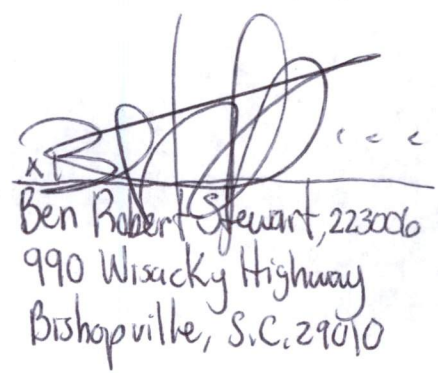 x
Ben Robert Stewart, 223006
990 Wisacky Highway
Bishopville, S.C. 29010